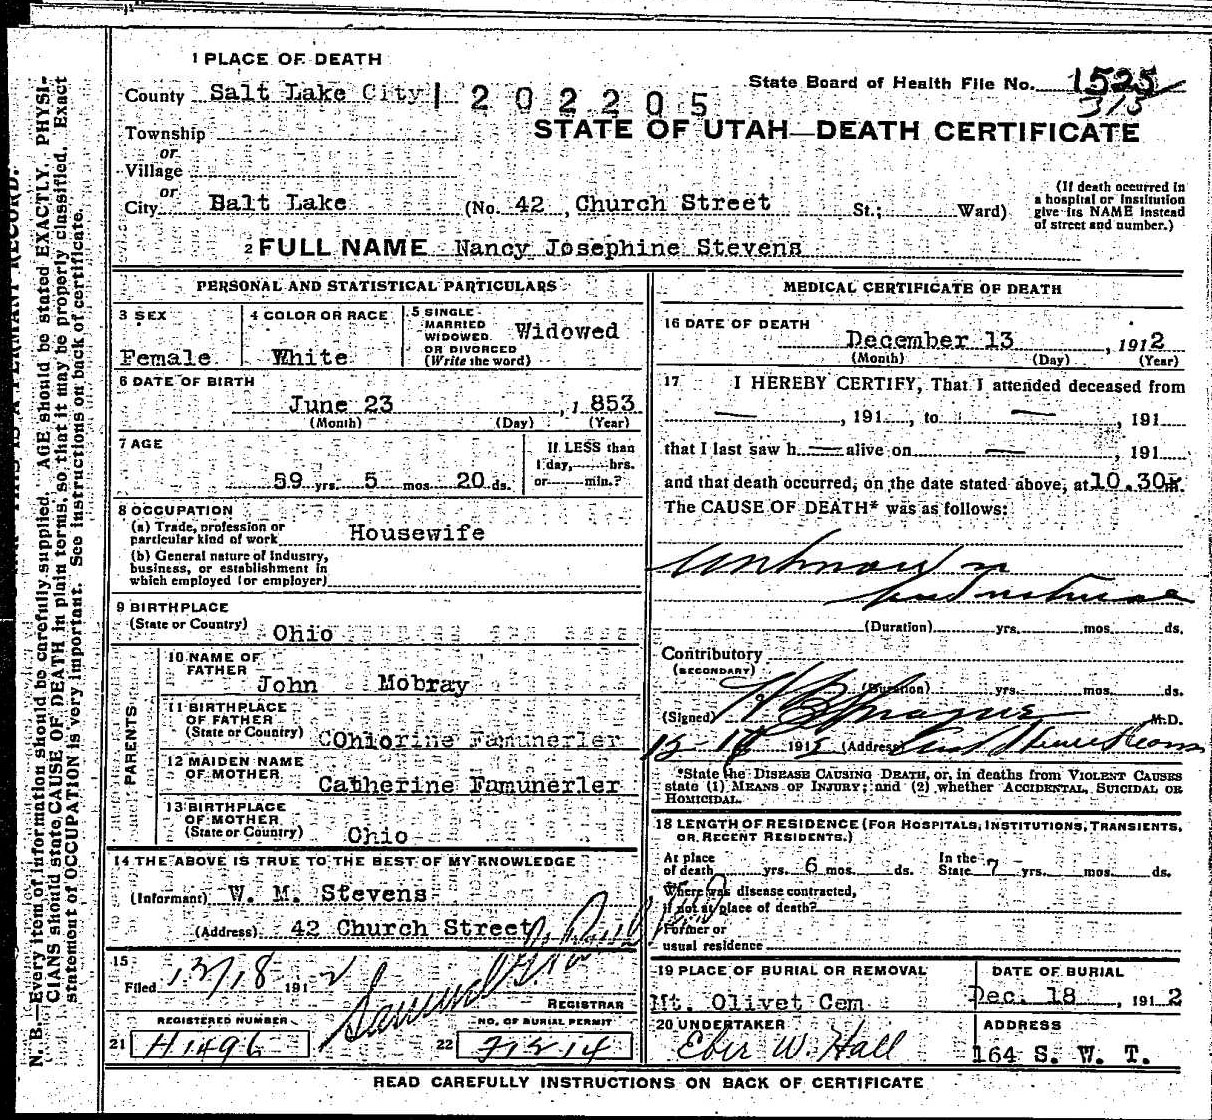 1 PLACE OF DEATH
State Board of Health File No. 1525
315
County Salt Lake City | 202205
STATE OF UTAH—DEATH CERTIFICATE
Township
or
Village
or
City Balt Lake (No. 42, Church Street St.; Ward)
(If death occurred in
a hospital or institution
give its NAME instead
of street and number.)
2 FULL NAME Nancy Josephine Stevens
PERSONAL AND STATISTICAL PARTICULARS
3 SEX
Female
4 COLOR OR RACE
White
5 SINGLE
MARRIED
WIDOWED
OR DIVORCED
(Write the word)
Widowed
6 DATE OF BIRTH
June 23, 1853
(Month) (Day) (Year)
7 AGE
59 yrs. 5 mos. 20 ds.
If LESS than
1 day, hrs.
or min.?
8 OCCUPATION
(a) Trade, profession or
particular kind of work Housewife
(b) General nature of Industry,
business, or establishment in
which employed (or employer)
9 BIRTHPLACE
(State or Country) Ohio
PARENTS
10 NAME OF
FATHER
John Mobray
11 BIRTHPLACE
OF FATHER
(State or Country)
12 MAIDEN NAME
OF MOTHER
Catherine Famunerler
13 BIRTHPLACE
OF MOTHER
(State or Country) Ohio
14 THE ABOVE IS TRUE TO THE BEST OF MY KNOWLEDGE
(Informant) W. M. Stevens
(Address) 42 Church Street
15
Filed 12/18 1912
REGISTRAR
REGISTERED NUMBER
21 H1496
NO. OF BURIAL PERMIT
22
MEDICAL CERTIFICATE OF DEATH
16 DATE OF DEATH
December 13, 1912
(Month) (Day) (Year)
17 I HEREBY CERTIFY, That I attended deceased from
— , 191 , to — , 191
that I last saw h — alive on — , 191
and that death occurred, on the date stated above, at 10.30 M.
The CAUSE OF DEATH* was as follows:
Unknown
(Duration) yrs. mos. ds.
Contributory
(SECONDARY)
(Duration) yrs. mos. ds.
(Signed) Sprague M.D.
191 (Address)
*State the DISEASE CAUSING DEATH, or, in deaths from VIOLENT CAUSES
state (1) MEANS OF INJURY; and (2) whether ACCIDENTAL, SUICIDAL OR
HOMICIDAL.
18 LENGTH OF RESIDENCE (FOR HOSPITALS, INSTITUTIONS, TRANSIENTS,
OR RECENT RESIDENTS.)
At place
of death yrs. 6 mos. ds.
In the
State 7 yrs. mos. ds.
Where was disease contracted,
if not at place of death?
Former or
usual residence
19 PLACE OF BURIAL OR REMOVAL
Mt. Olivet Cem
DATE OF BURIAL
Dec. 18, 1912
20 UNDERTAKER
Eber W. Hall
ADDRESS
164 S. W. T.
READ CAREFULLY INSTRUCTIONS ON BACK OF CERTIFICATE
N. B.—Every item of information should be carefully supplied. AGE should be stated EXACTLY. PHYSI-
CIANS should state CAUSE OF DEATH in plain terms, so that it may be properly classified. Exact
statement of OCCUPATION is very important. See instructions on back of certificate.